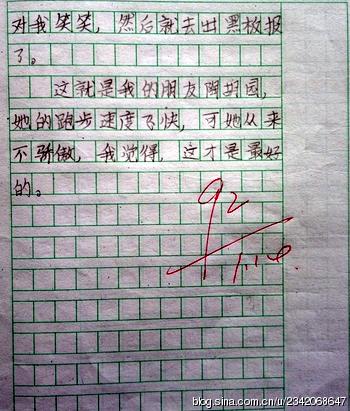 对我笑笑，然后就去出黑板报
了。
这就是我的朋友陶胡园，
她的跑步速度飞快，可她从来
不骄傲，我觉得，这才是最好
的。
92
11.14
blog.sina.com.cn/u/2342068647